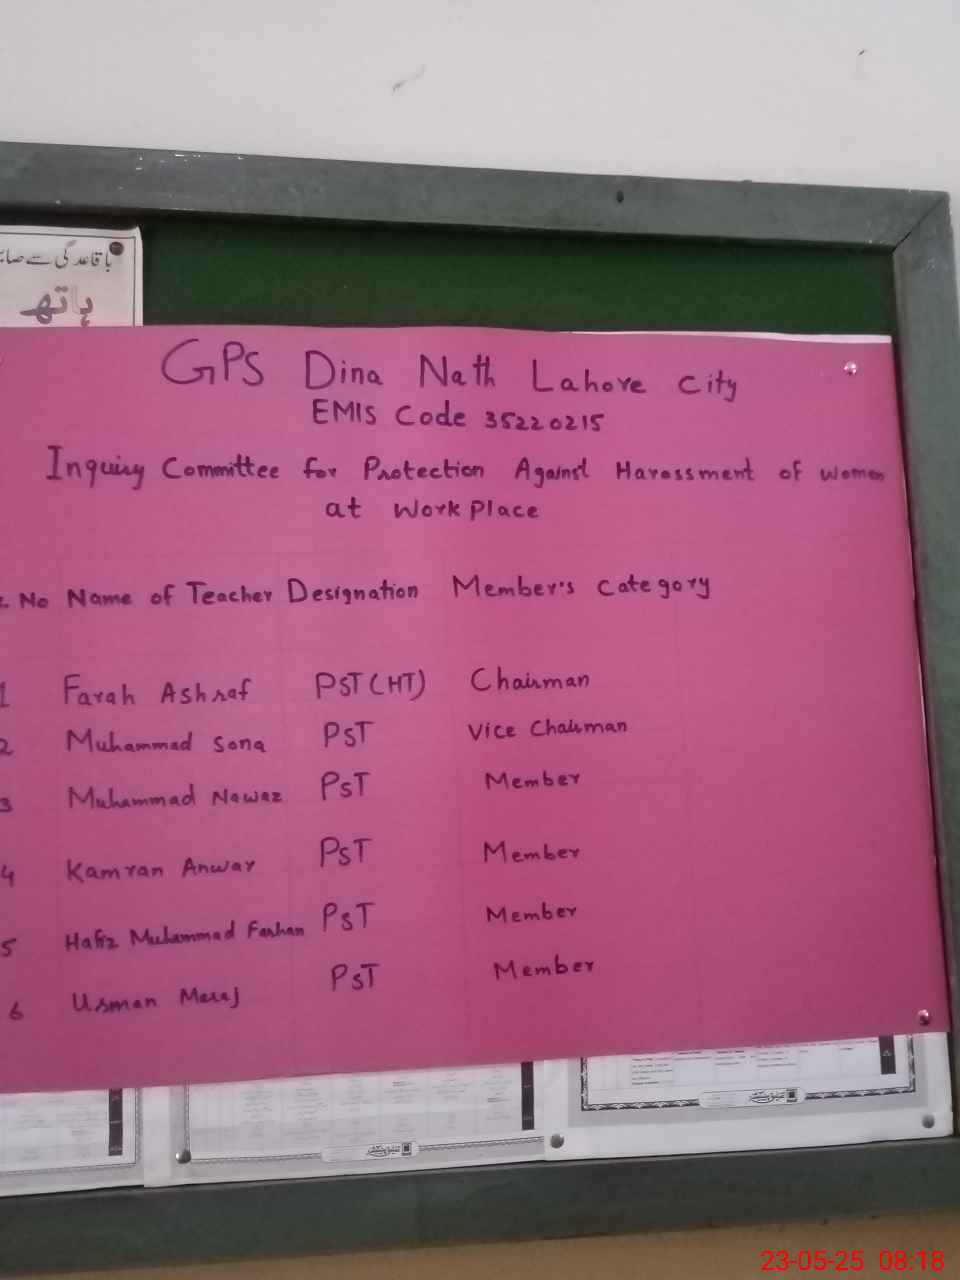 با قاعدگی سے صاب
ہاتھ
GPS Dina Nath Lahore City
EMIS Code 35220215
Inquiry Committee for Protection Against Harassment of Women
at Work Place
. No Name of Teacher Designation Member's Category
1 Farah Ashraf PST (HT) Chairman
2 Muhammad Sona PST Vice Chairman
3 Muhammad Nawaz PST Member
4 Kamran Anwar PST Member
5 Hafiz Muhammad Farhan PST Member
6 Usman Meraj PST Member
23-05-25 08:18